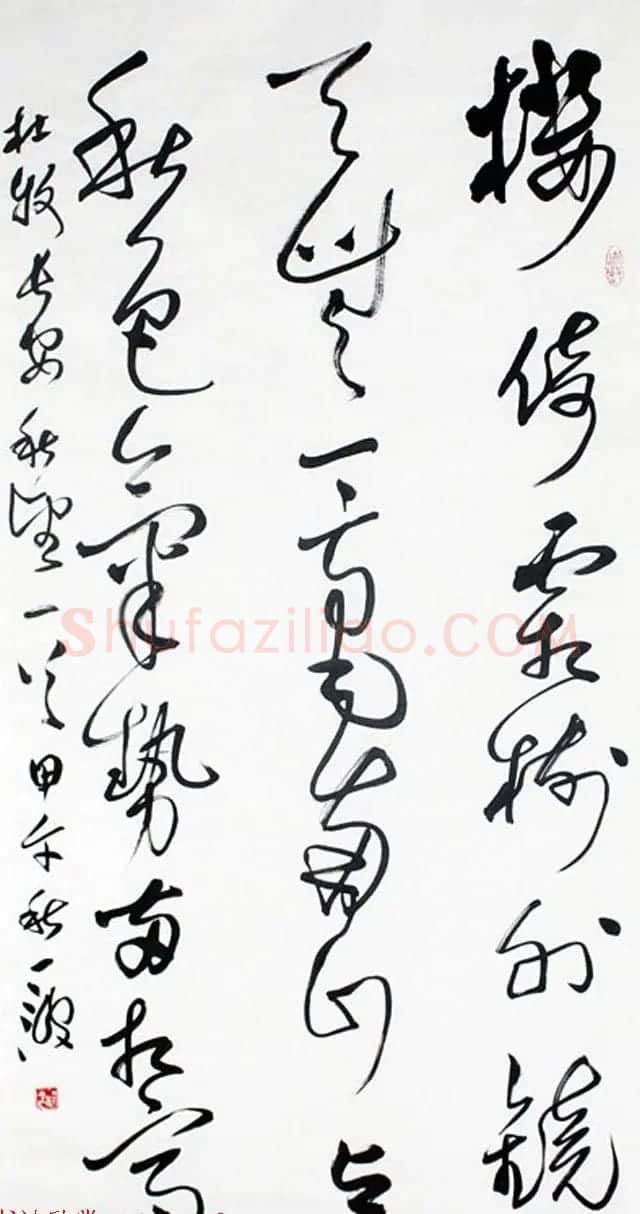 楼倚霜树外镜
天无一毫南山与
秋色气势两相高
杜牧长安秋望一首甲午秋一波
shufaziliao.COM